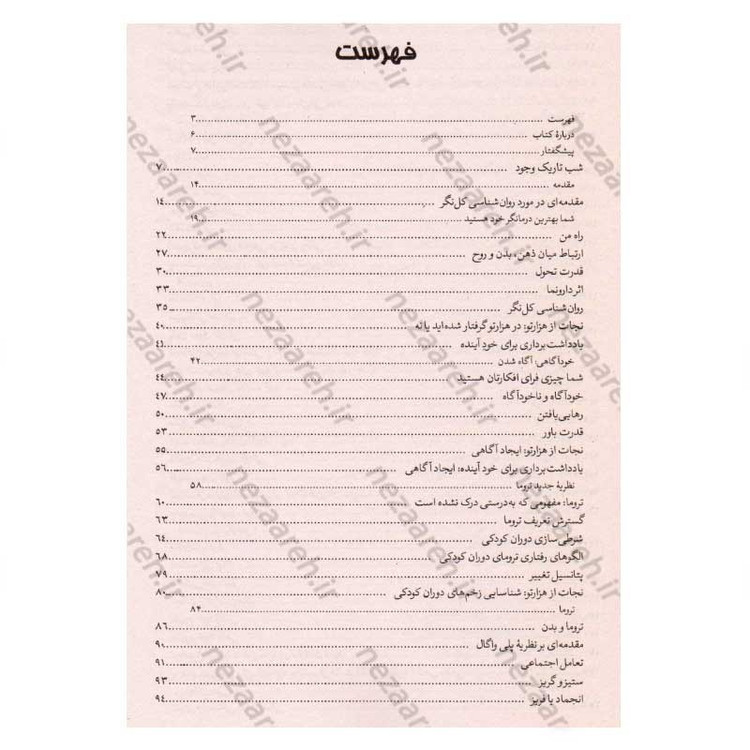 فهرست
فهرست ........ ۳
دربارهٔ کتاب ........ ۶
پیشگفتار ........ ۷
شب تاریک وجود ........ ۷
مقدمه ........ ۱۴
مقدمه‌ای در مورد روان‌شناسی کل‌نگر ........ ۱۴
شما بهترین درمانگر خود هستید ........ ۱۹
راه من ........ ۲۲
ارتباط میان ذهن، بدن و روح ........ ۲۷
قدرت تحول ........ ۳۰
اثر دارونما ........ ۳۳
روان‌شناسی کل‌نگر ........ ۳۵
نجات از هزارتو: در هزارتو گرفتار شده‌اید یا نه ........ ۴۰
یادداشت‌برداری برای خود آینده ........ ۴۱
خودآگاهی: آگاه شدن ........ ۴۲
شما چیزی فرای افکارتان هستید ........ ۴۴
خودآگاه و ناخودآگاه ........ ۴۷
رهایی‌یافتن ........ ۵۰
قدرت باور ........ ۵۳
نجات از هزارتو: ایجاد آگاهی ........ ۵۵
یادداشت‌برداری برای خود آینده: ایجاد آگاهی ........ ۵۶
نظریهٔ جدید تروما ........ ۵۸
تروما: مفهومی که به‌درستی درک نشده است ........ ۶۰
گسترش تعریف تروما ........ ۶۳
شرطی‌سازی دوران کودکی ........ ۶۴
الگوهای رفتاری ترومای دوران کودکی ........ ۶۸
پتانسیل تغییر ........ ۷۹
نجات از هزارتو: شناسایی زخم‌های دوران کودکی ........ ۸۰
تروما ........ ۸۴
تروما و بدن ........ ۸۶
مقدمه‌ای بر نظریهٔ پلی واگال ........ ۹۰
تعامل اجتماعی ........ ۹۱
ستیز و گریز ........ ۹۳
انجماد یا فریز ........ ۹۴
nezaareh.ir